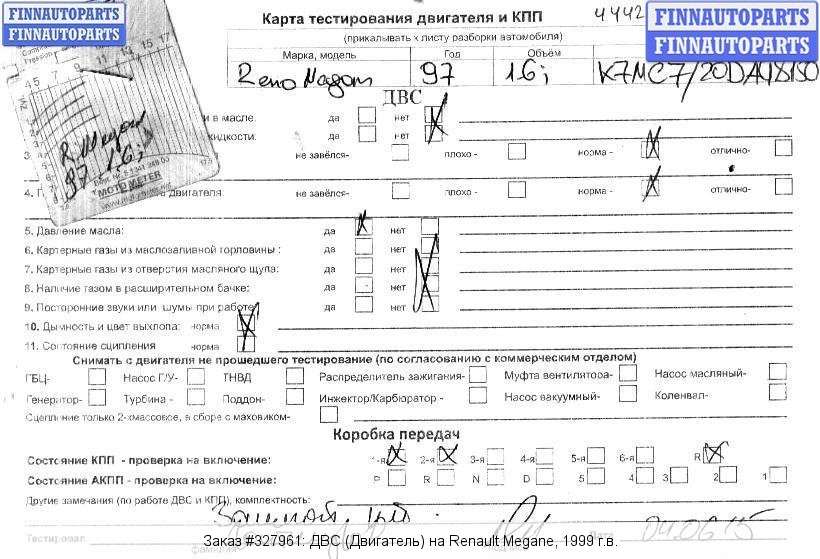 FINNAUTOPARTS
FINNAUTOPARTS
Карта тестирования двигателя и КПП
4442
FINNAUTOPARTS
FINNAUTOPARTS
(прикалывать к листу разборки автомобиля)
Марка, модель Год Объём
Reno Megan 97 1.6i K7MC7/20DA48150
R Megan
97 1.6i
MOTOMETER
ДВС
в масле. да нет
да нет
3. не завёлся- плохо - норма - отлично-
4. двигателя. не завёлся- плохо - норма - отлично-
5. Давление масла: да нет
6. Картерные газы из маслозаливной горловины : да нет
7. Картерные газы из отверстия масляного щупа: да нет
8. Наличие газом в расширительном бачке: да нет
9. Посторонние звуки или шумы при работе: да нет
10. Дымность и цвет выхлопа: норма
11. Состояние сцепления норма
Снимать с двигателя не прошедшего тестирование (по согласованию с коммерческим отделом)
ГБЦ- Насос Г/У- ТНВД Распределитель зажигания- Муфта вентилятора- Насос масляный-
Генератор- Турбина - Поддон- Инжектор/Карбюратор - Насос вакуумный- Коленвал-
Сцепление только 2-хмассовое, в сборе с маховиком-
Коробка передач
Состояние КПП - проверка на включение: 1-я 2-я 3-я 4-я 5-я 6-я R
Состояние АКПП - проверка на включение: P R N D 5 4 3 2 1
Другие замечания (по работе ДВС и КПП), комплектность:
Тестировал Дата 04.06.15
фамилия
Заказ #327961: ДВС (Двигатель) на Renault Megane, 1999 г.в.